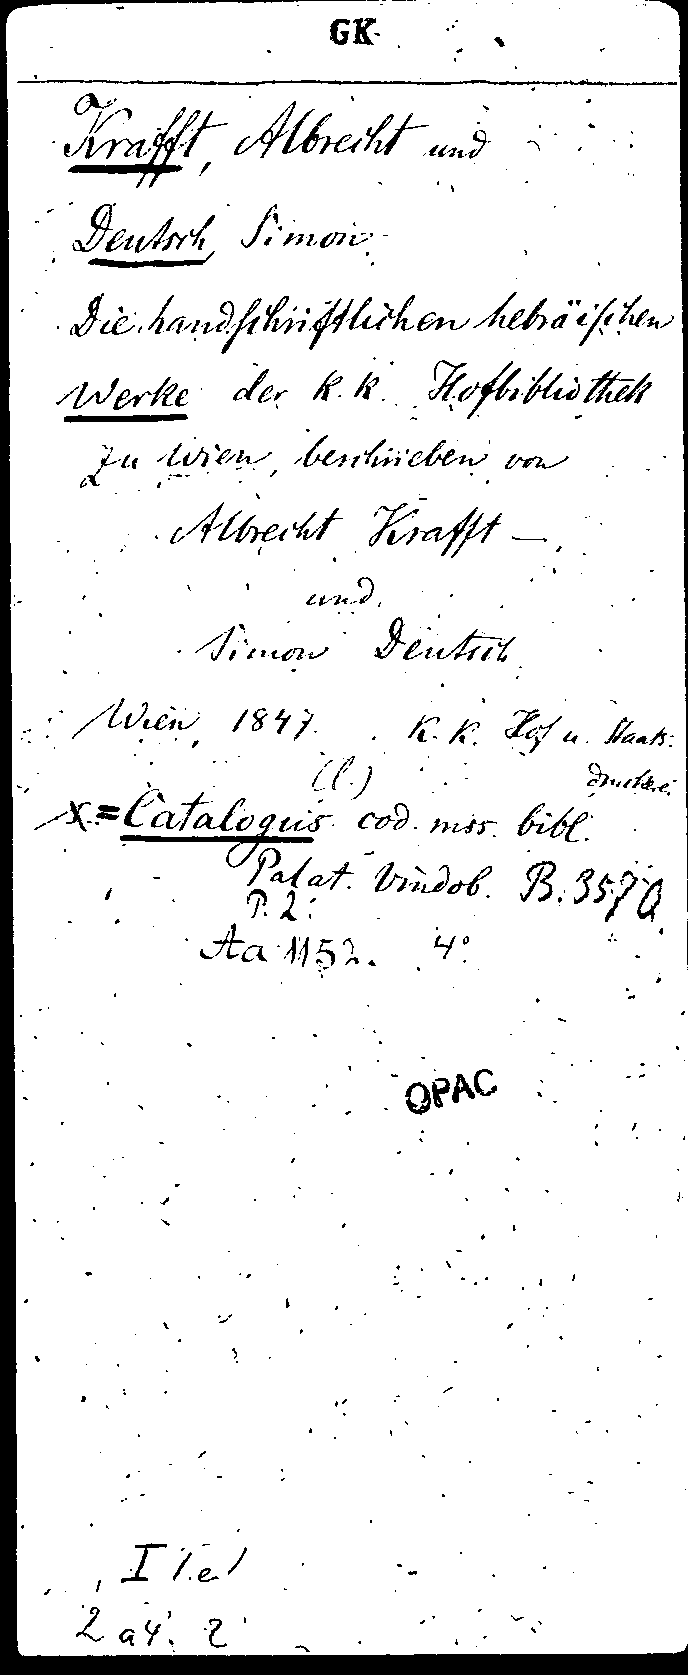 GK
Krafft, Albrecht und
Deutsch, Simon
Die handschriftlichen hebräischen
Werke der k. k. Hofbibliothek
zu Wien, beschrieben von
Albrecht Krafft –
und
Simon Deutsch
Wien 1847. K. K. Hof u. Staats-
druckerei
(l.)
x = Catalogus cod. mss. bibl.
Palat. Vindob. B. 357 Q
P. 2.
Aa 1152. 4°
OPAC
2 a4. 2